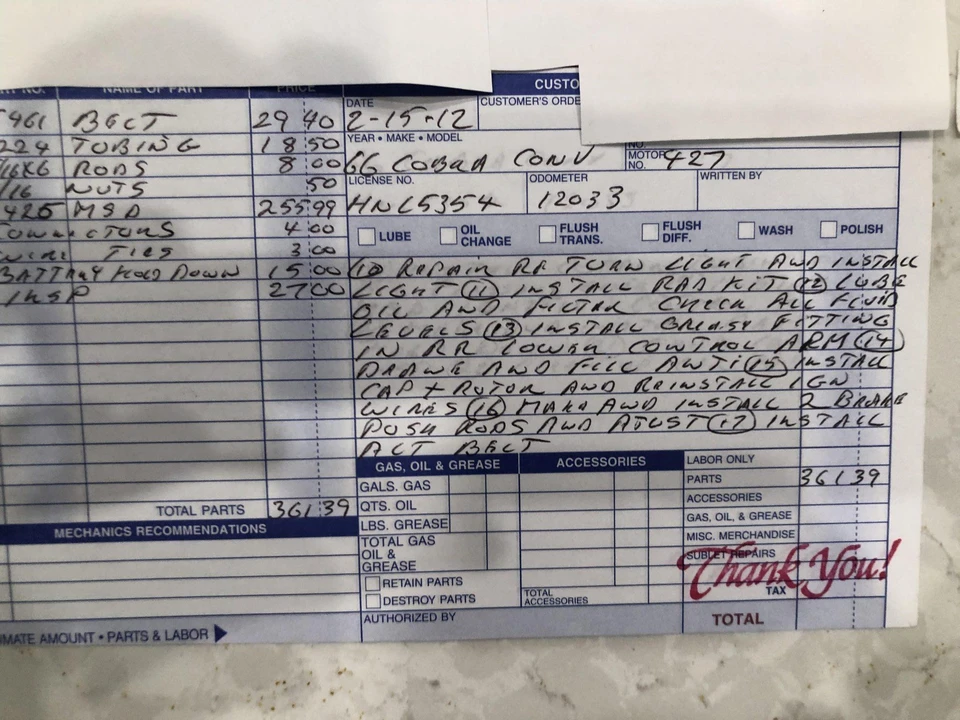 NAME OF PART PRICE
461 BELT 29 40
224 TUBING 18 50
/16X6 RODS 8 00
/16 NUTS 50
425 MSD 255 99
CONNECTORS 4 00
WIRE TIES 3 00
BATTARY HOLD DOWN 15 00
INSP 27 00
TOTAL PARTS 361 39
MECHANICS RECOMMENDATIONS
IMATE AMOUNT • PARTS & LABOR
CUSTO
DATE CUSTOMER'S ORDE
2-15-12
YEAR • MAKE • MODEL
66 COBRA CONV
NO.
MOTOR NO. 427
LICENSE NO. ODOMETER WRITTEN BY
HNL5354 12033
LUBE OIL CHANGE FLUSH TRANS. FLUSH DIFF. WASH POLISH
(10 REPAIR RR TURN LIGHT AND INSTALL
LIGHT (11) INSTALL RAD KIT (12) LUBE
OIL AND FILTER CHECK ALL FLUID
LEVELS (13) INSTALL GREASY FITTING
IN RR LOWER CONTROL ARM (14)
DRANE AND FILL ANTI (15) INSTALL
CAP + ROTOR AND REINSTALL IGN
WIRES (16) MAKE AND INSTALL 2 BRAKE
PUSH RODS AND ATUST (17) INSTALL
ALT BELT
GAS, OIL & GREASE ACCESSORIES LABOR ONLY
GALS. GAS PARTS 361 39
QTS. OIL ACCESSORIES
LBS. GREASE GAS, OIL, & GREASE
TOTAL GAS OIL & GREASE MISC. MERCHANDISE
SUBLET REPAIRS
Thank You!
RETAIN PARTS
DESTROY PARTS TOTAL ACCESSORIES TAX
AUTHORIZED BY TOTAL